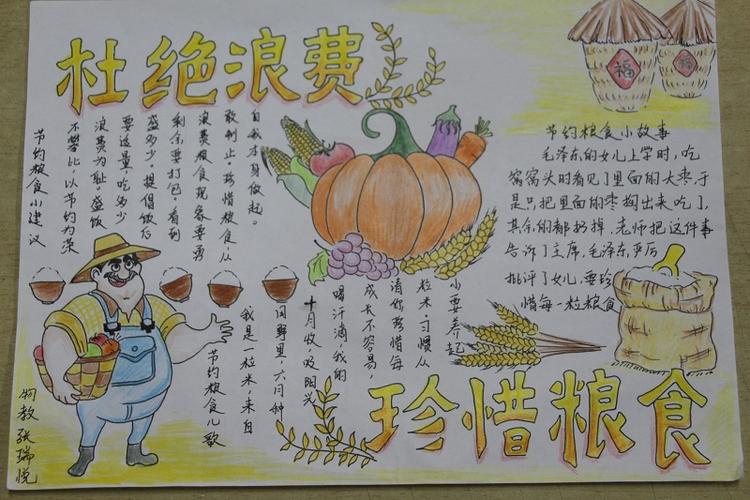 杜绝浪费
福
福
节约粮食小建议
不攀比,以节约为荣
浪费为耻。盛饭
要适量,吃多少
盛多少。提倡饭后
剩余要打包,看到
浪费粮食现象要勇
敢制止,珍惜粮食从
自我本身做起。
节约粮食小故事
毛泽东的女儿上学时,吃
窝窝头时看见了里面的大枣,于
是只把里面的枣掏出来吃了,
其余的都扔掉,老师把这件事
告诉了主席,毛泽东严厉
批评了女儿,要珍
惜每一粒粮食
节约粮食儿歌
我是一粒米,来自
田野里,六月种
十月收,吸阳光
喝汗滴,我的
成长不容易,
请你珍惜每
粒米,习惯从
小要养起
珍惜粮食
物教 张瑞悦